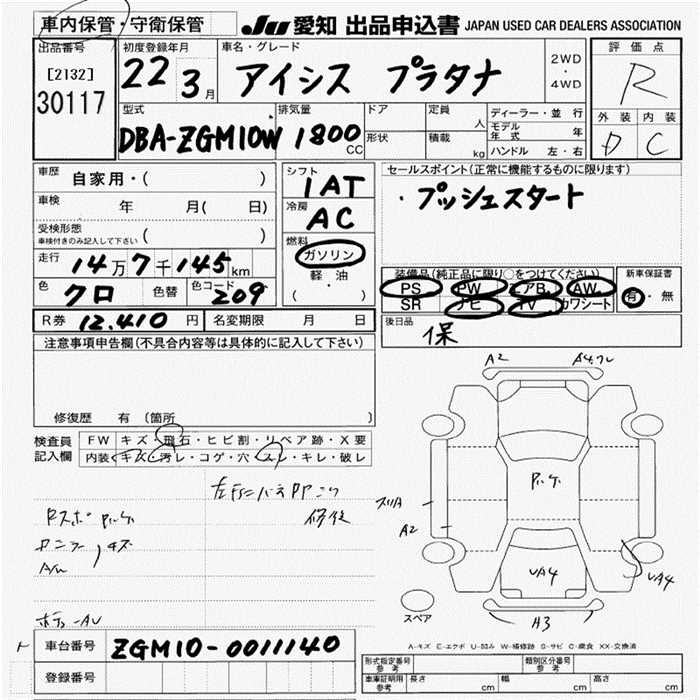 車内保管・守衛保管
JU 愛知 出品申込書 JAPAN USED CAR DEALERS ASSOCIATION
出品番号
[2132]
30117
初度登録年月
22 3月
車名・グレード
アイシス プラタナ
2WD
・
4WD
評価点
R
外装 内装
D C
型式
DBA-ZGM10W
排気量
1800 CC
ドア
形状
定員 人
積載 kg
ディーラー・並行
モデル年式 年
ハンドル 左・右
車歴 自家用・( )
車検 年 月( 日)
受検形態
車検付きのみ記入して下さい ( )
走行 14万7千145km
色 クロ 色替 色コード 209
シフト
1AT
冷房
AC
燃料
ガソリン
軽・油
( )
セールスポイント(正常に機能するものに限ります)
・プッシュスタート
装備品(純正品に限り○をつけてください)
PS PW アB AW
SR ナビ TV カワシート
新車保証書
有・無
R券 12,410円 名変期限 月 日
後日品
保
注意事項申告欄(不具合内容等は具体的に記入して下さい)
修復歴 有 (箇所 )
検査員
記入欄
FW キズ・飛石・ヒビ割・リペア跡・X要
内装 キズ・汚レ・コゲ・穴・スレ・キレ・破レ
修復
A2
A2
UA4
UA4
A3
スペア
A-キズ E-エクボ U-凹み W-補修跡 S-サビ C-腐食 XX-交換済
車台番号 ZGM10-0011140
登録番号
形式指定番号
参考
類別区分番号
参考
車庫証明用
参考
長さ cm 幅 cm 高さ cm